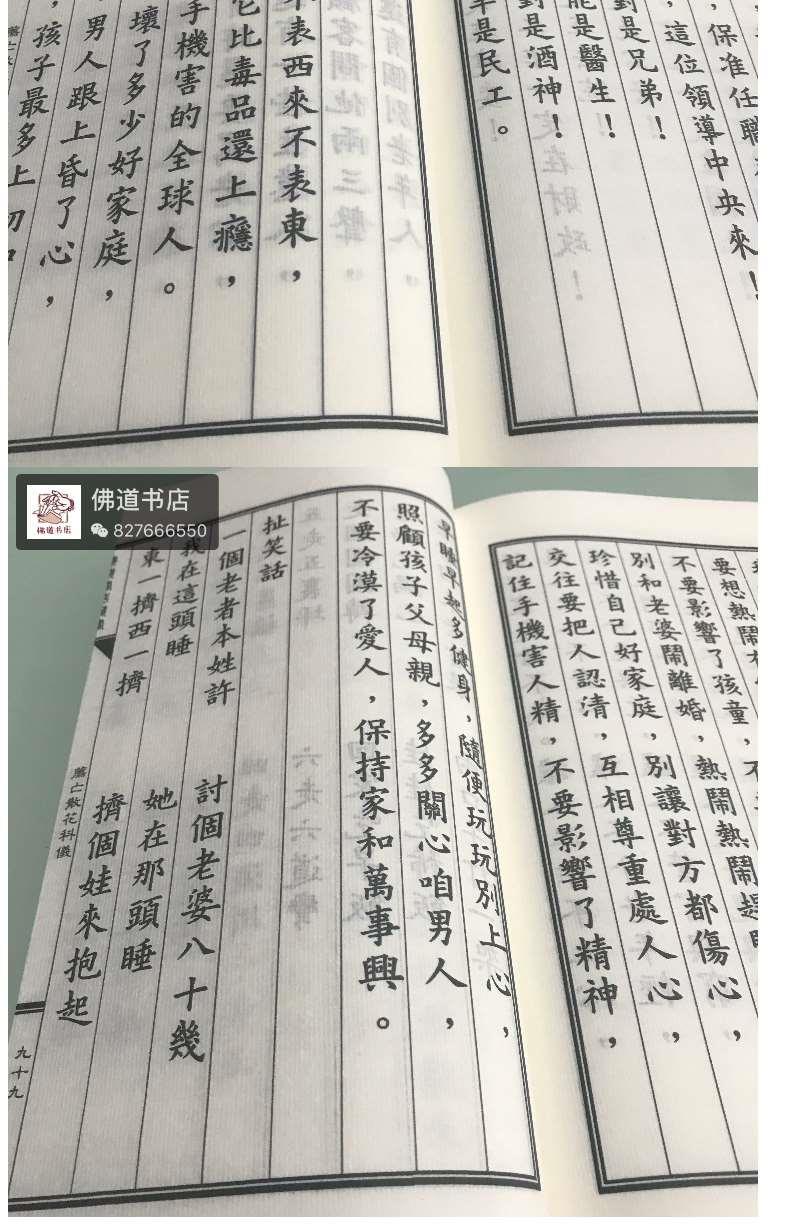 保准任職
這位領導中央來！
對是兄弟！
能是醫生！
對是酒神！
是民工。
不表西來不表東，
它比毒品還上癮，
手機害的全球人。
壞了多少好家庭，
男人跟上昏了心，
孩子最多上
佛道书店
827666550
要想熱鬧
不要影響了孩童，
別和老婆鬧離婚，熱鬧熱鬧
珍惜自己好家庭，別讓對方都傷心，
交往要把人認清，互相尊重處人心，
記住手機害人精，不要影響了精神，
早睡早起多健身，隨便玩玩別上心，
照顧孩子父母親，多多關心咱男人，
不要冷漠了愛人，保持家和萬事興。
扯笑話
一個老者本姓許 討個老婆八十幾
我在這頭睡 她在那頭睡
東一擠西一擠 擠個娃來抱起
薦亡散花科儀
九十九